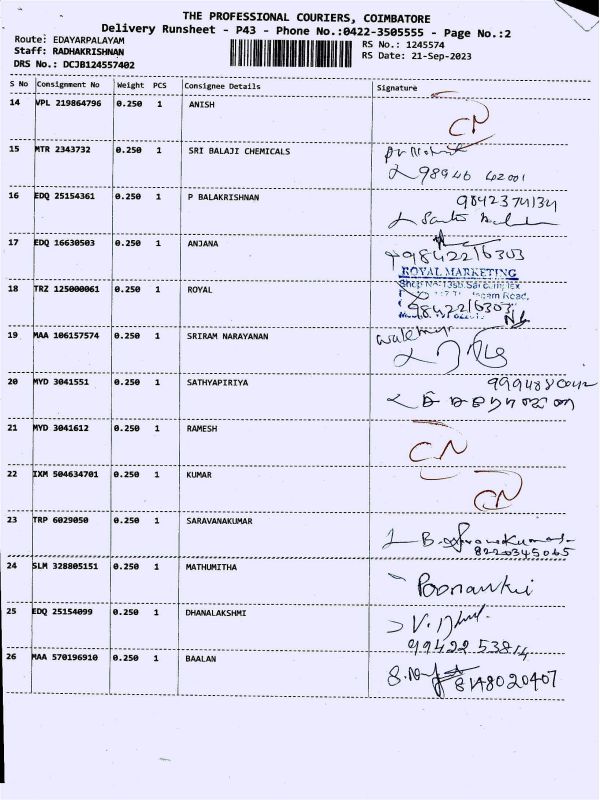 THE PROFESSIONAL COURIERS, COIMBATORE
Delivery Runsheet - P43 - Phone No.:0422-3505555 - Page No.:2
Route: EDAYARPALAYAM RS No.: 1245574
Staff: RADHAKRISHNAN RS Date: 21-Sep-2023
DRS No.: DCJB124557402
S No Consignment No Weight PCS Consignee Details Signature
14 VPL 219864796 0.250 1 ANISH CN
15 MTR 2343732 0.250 1 SRI BALAJI CHEMICALS
98946 42001
16 EDQ 25154361 0.250 1 P BALAKRISHNAN
17 EDQ 16630503 0.250 1 ANJANA
9842216303
ROYAL MARKETING
18 TRZ 125000061 0.250 1 ROYAL
9842216303
19 MAA 106157574 0.250 1 SRIRAM NARAYANAN
20 MYD 3041551 0.250 1 SATHYAPIRIYA
21 MYD 3041612 0.250 1 RAMESH CN
22 IXM 504634701 0.250 1 KUMAR CN
23 TRP 6029050 0.250 1 SARAVANAKUMAR
8220345065
24 SLM 328805151 0.250 1 MATHUMITHA
25 EDQ 25154099 0.250 1 DHANALAKSHMI
99422 53814
26 MAA 570196910 0.250 1 BAALAN
8148020407